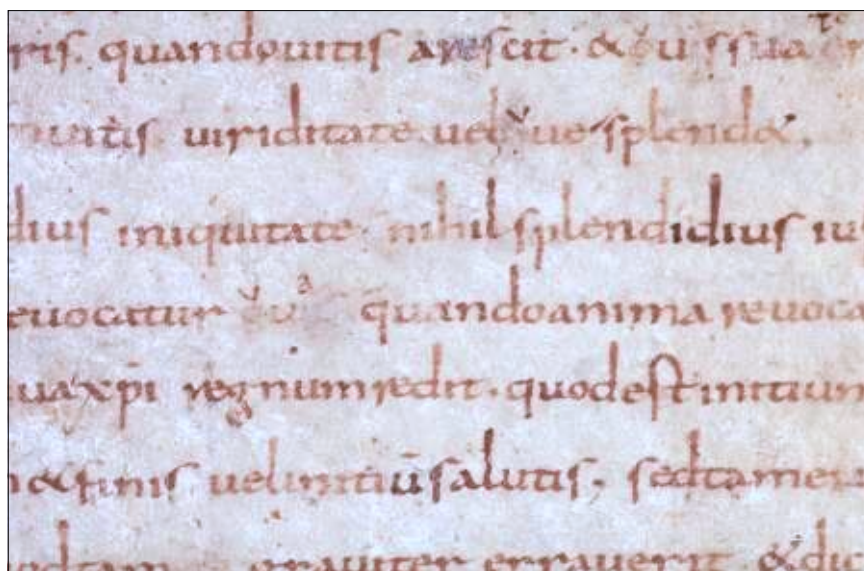 ris. quandouitis arescit. &
uitis uiriditate uel splend&.
dius iniquitate. nihil splendidius ius
euocatur quandoanima reuoca
uaxp̄i regnumredit. quodest initium
n&finis uelinitiū salutis. sedtamen
grauiter errauerit. &dic